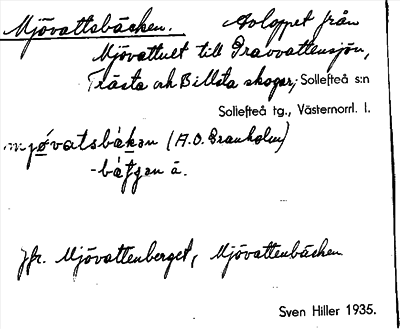 Mjövattsbäcken. Avloppet från
Mjövattnet till Gravvattensjön,
Trästa och Billsta skogar, Sollefteå s:n
Sollefteå tg., Västernorrl. l.
mjøvatsbäkən (A.O. Granholm)
-bäƭʃən ä.
Jfr. Mjövattenberget, Mjövattenbäcken
Sven Hiller 1935.